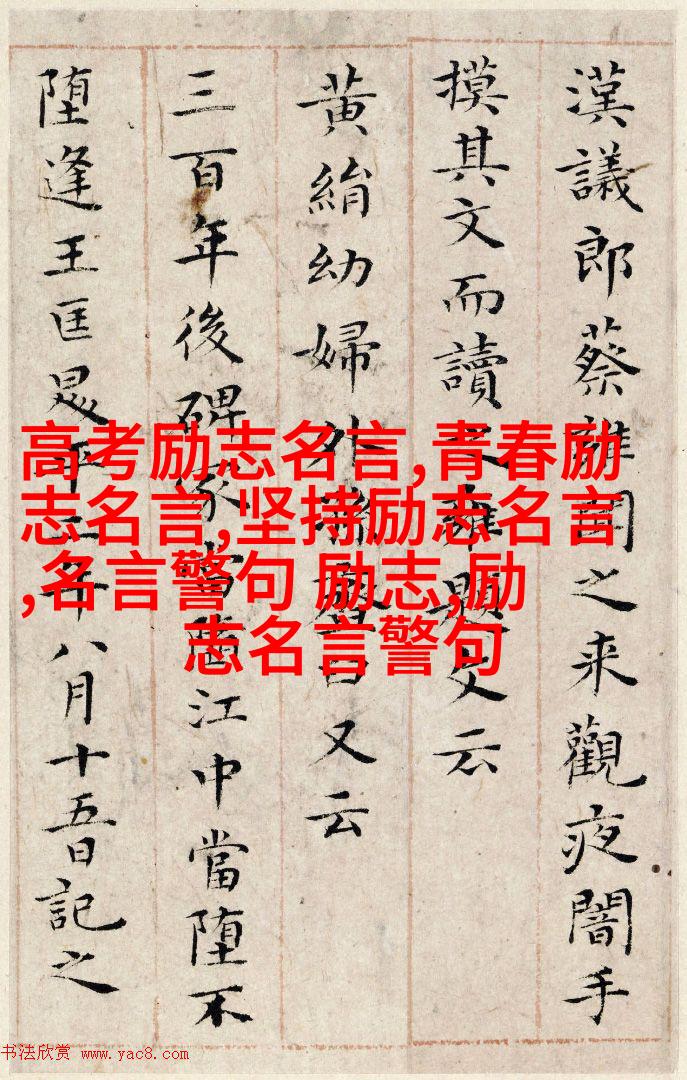 漢議郎蔡雝聞之来觀夜闇手
摸其文而讀之雝題文云
黄絹幼婦外孫臼又云
三百年後碑冢當堕江中當堕不
堕逢王匡昇平二年八月十五日記之
高考励志名言,青春励
志名言,坚持励志名言
,名言警句 励志,励
志名言警句
书法欣赏 www.yac8.com